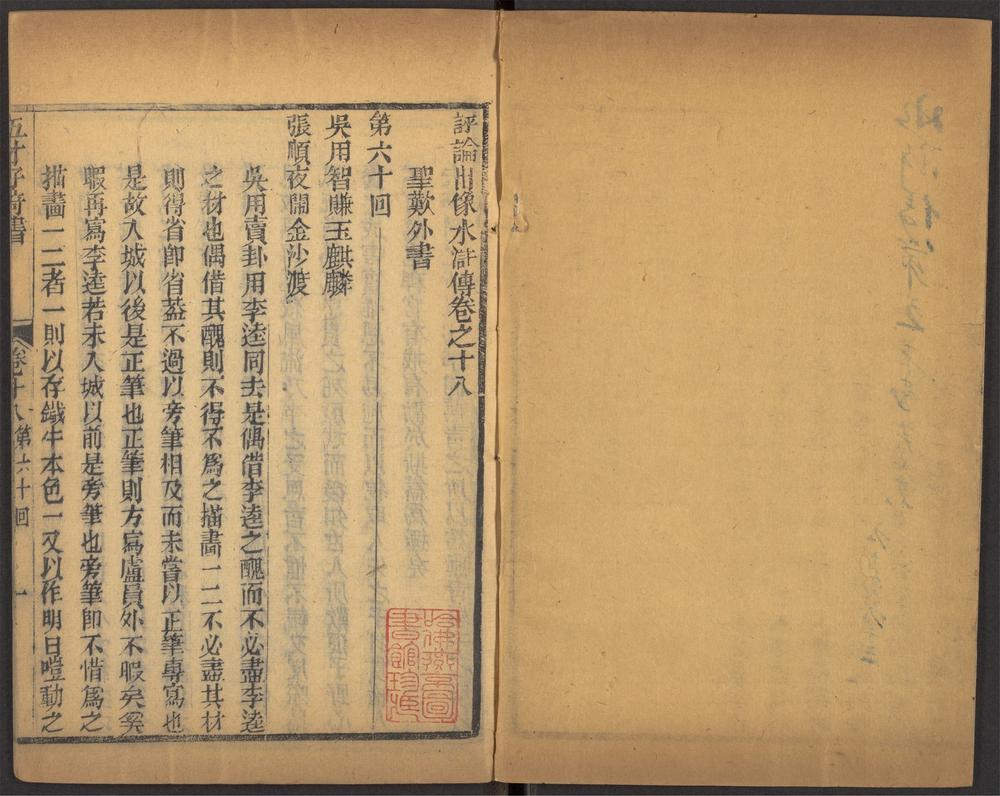 評論出像水滸傳卷之十八
聖歎外書
第六十回
吳用智賺玉麒麟
張順夜鬧金沙渡
吳用賣卦用李逵同去是偶借李逵之醜而不必盡李逵
之材也偶借其醜則不得不爲之描畫一二不必盡其材
則得省卽省葢不過以旁筆相及而未嘗以正筆專寫也
是故入城以後是正筆也正筆則方寫盧員外不暇矣奚
暇再寫李逵若未入城以前是旁筆也旁筆卽不惜爲之
描畫一二者一則以存鐵牛本色一又以作明日喧動之
五才子奇書
卷十八第六十回
一
哈佛燕京圖
書館珍藏